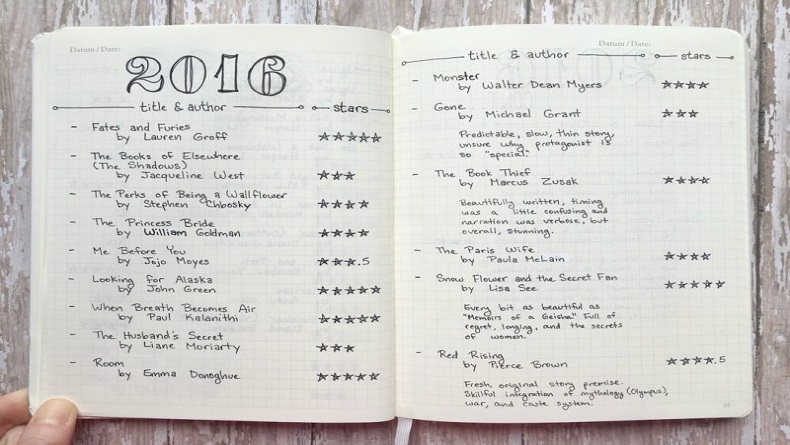 Datum / Date:
2016
title & author stars
- Fates and Furies
by Lauren Groff ★★★★★
- The Books of Elsewhere
(The Shadows)
by Jacqueline West ★★★
- The Perks of Being a Wallflower
by Stephen Chbosky ★★★★
- The Princess Bride
by William Goldman ★★★★
- Me Before You
by Jojo Moyes ★★★.5
- Looking for Alaska
by John Green ★★★★★
- When Breath Becomes Air
by Paul Kalanithi ★★★★★
- The Husband's Secret
by Liane Moriarty ★★★
- Room
by Emma Donoghue ★★★★★
Datum / Date:
title & author stars
- Monster
by Walter Dean Myers ★★★★
- Gone
by Michael Grant ★★★
Predictable, slow, thin story,
unsure why protagonist is
so "special."
- The Book Thief
by Marcus Zusak ★★★★
Beautifully written, timing
was a little confusing and
narration was verbose, but
overall, stunning.
- The Paris Wife
by Paula McLain ★★★★
- Snow Flower and the Secret Fan
by Lisa See ★★★★★
Every bit as beautiful as
"Memoirs of a Geisha." Full of
regret, longing, and the secrets
of women.
- Red Rising
by Pierce Brown ★★★★.5
Fresh, original story premise.
Skillful integration of mythology (Olympus),
war, and caste system.